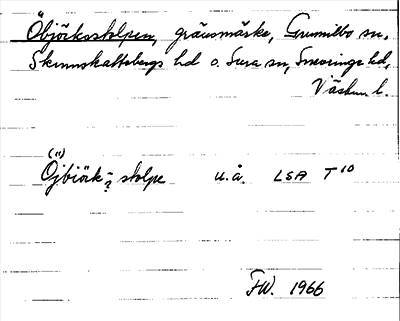 Öbjörksstolpen, gränsmärke, Grumilbo sn,
Skinnskattebergs hd o. Sura sn, Snevringe hd,
Västm. l.
(")
Öjbiörk-?stolpe u.å. LSA T¹⁰
FW. 1966